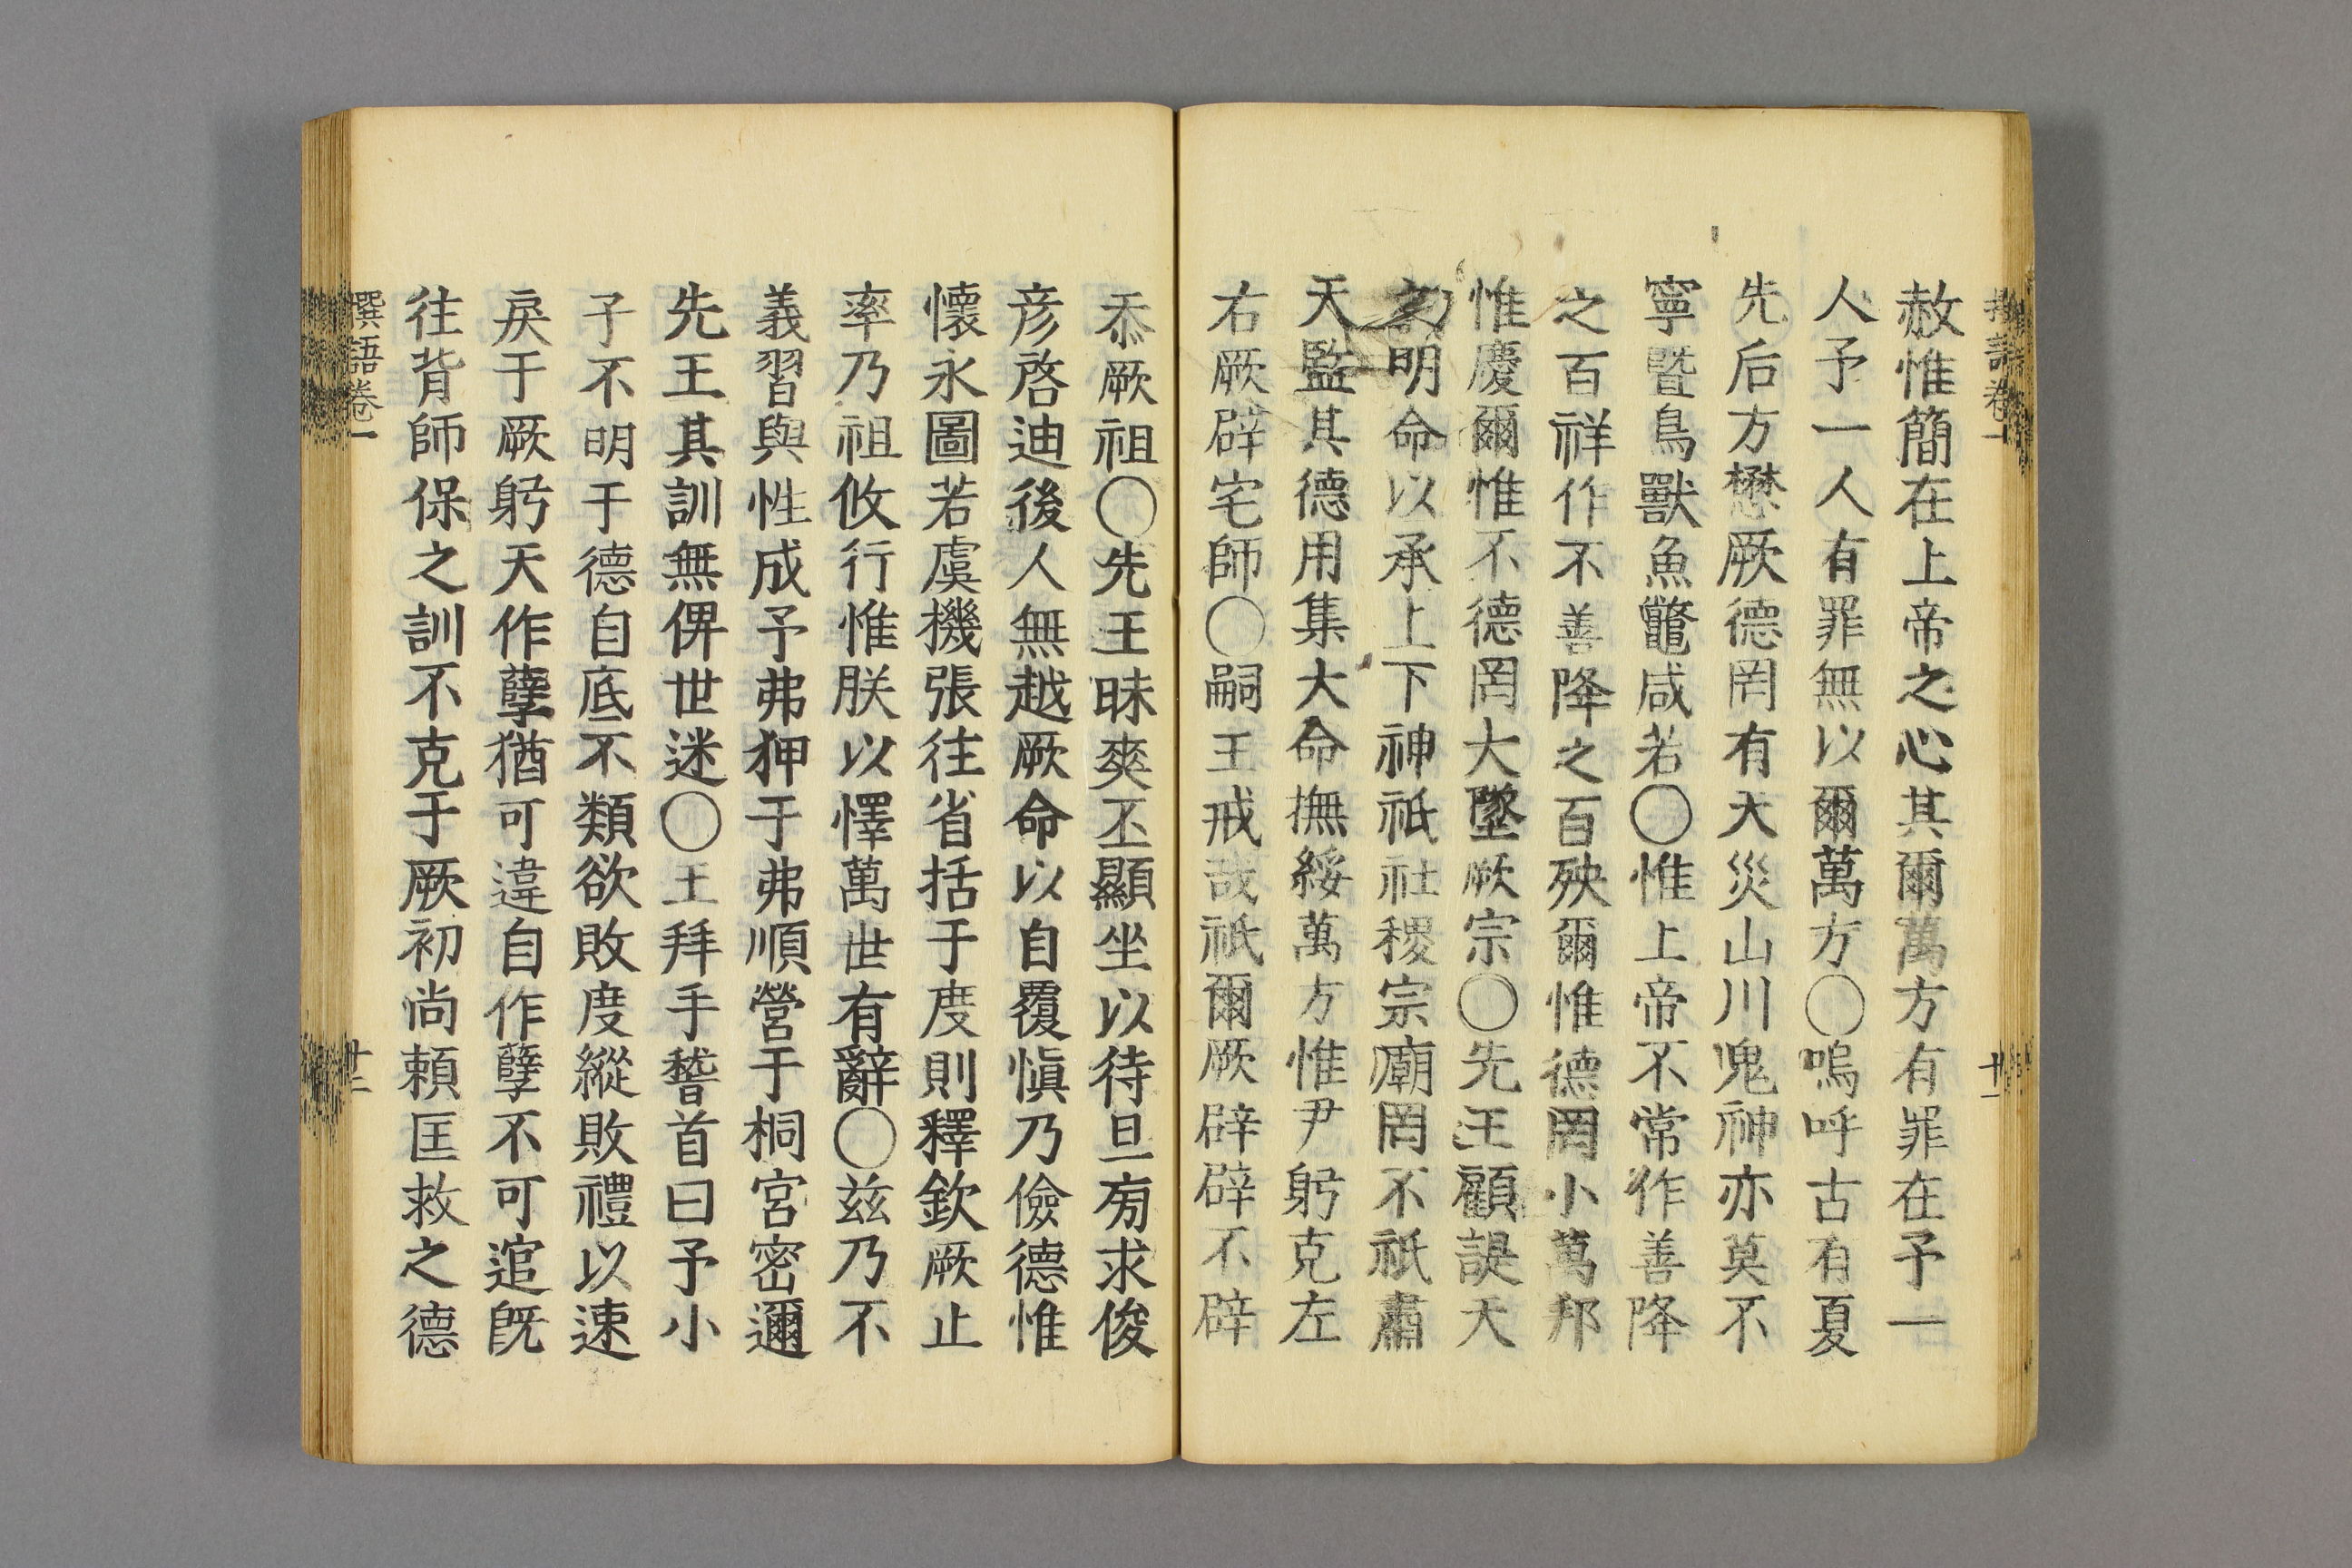 赦惟簡在上帝之心其爾萬方有罪在予一
人予一人有罪無以爾萬方〇嗚呼古有夏
先后方懋厥德罔有大災山川鬼神亦莫不
寧曁鳥獸魚鼈咸若〇惟上帝不常作善降
之百祥作不善降之百殃爾惟德罔小萬邦
惟慶爾惟不德罔大墜厥宗〇先王顧諟天
之明命以承上下神祇社稷宗廟罔不祇肅
天監其德用集大命撫綏萬方惟尹躬克左
右厥辟宅師〇嗣王戒哉祇爾厥辟辟不辟
忝厥祖〇先王昧爽丕顯坐以待旦旁求俊
彦啓迪後人無越厥命以自覆愼乃儉德惟
懷永圖若虞機張往省括于度則釋欽厥止
率乃祖攸行惟朕以懌萬世有辭〇玆乃不
義習與性成予弗狎于弗順營于桐宮密邇
先王其訓無俾世迷〇王拜手稽首曰予小
子不明于德自底不類欲敗度縱敗禮以速
戾于厥躬天作孽猶可違自作孽不可逭旣
往背師保之訓不克于厥初尚賴匡救之德
撰語卷一